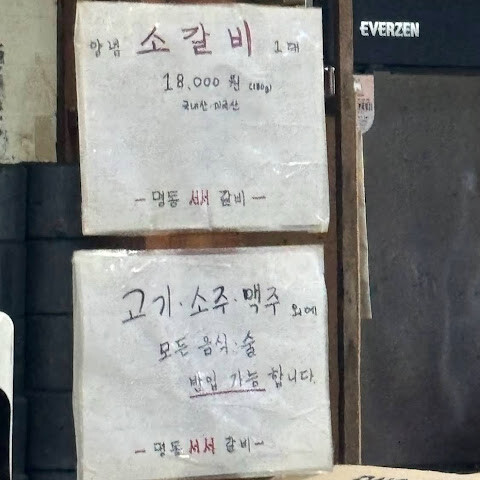 EVERZEN
양념 소갈비 1대
18,000 원 (180g)
국내산·미국산
- 명동 서서 갈비 -
고기·소주·맥주 외에
모든 음식·술
반입 가능 합니다.
- 명동 서서 갈비 -